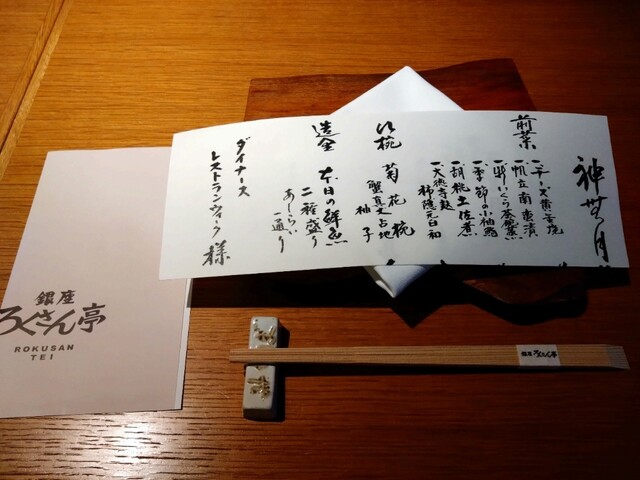 神無月
前菜
一、チーズ黄玉焼
一、帆立南蛮漬
一、卵いくら茶碗蒸
一、季節の小袖寿司
一、胡桃土佐煮
一、大徳寺麩
柿隠元白和
御椀
菊花椀
蟹真丈 占地
柚子
造里
本日の鮮魚
二種盛り
あしらい
一通り
ダイナース
レストランウィーク 様
銀座
ろくさん亭
ROKUSAN
TEI
銀座 ろくさん亭